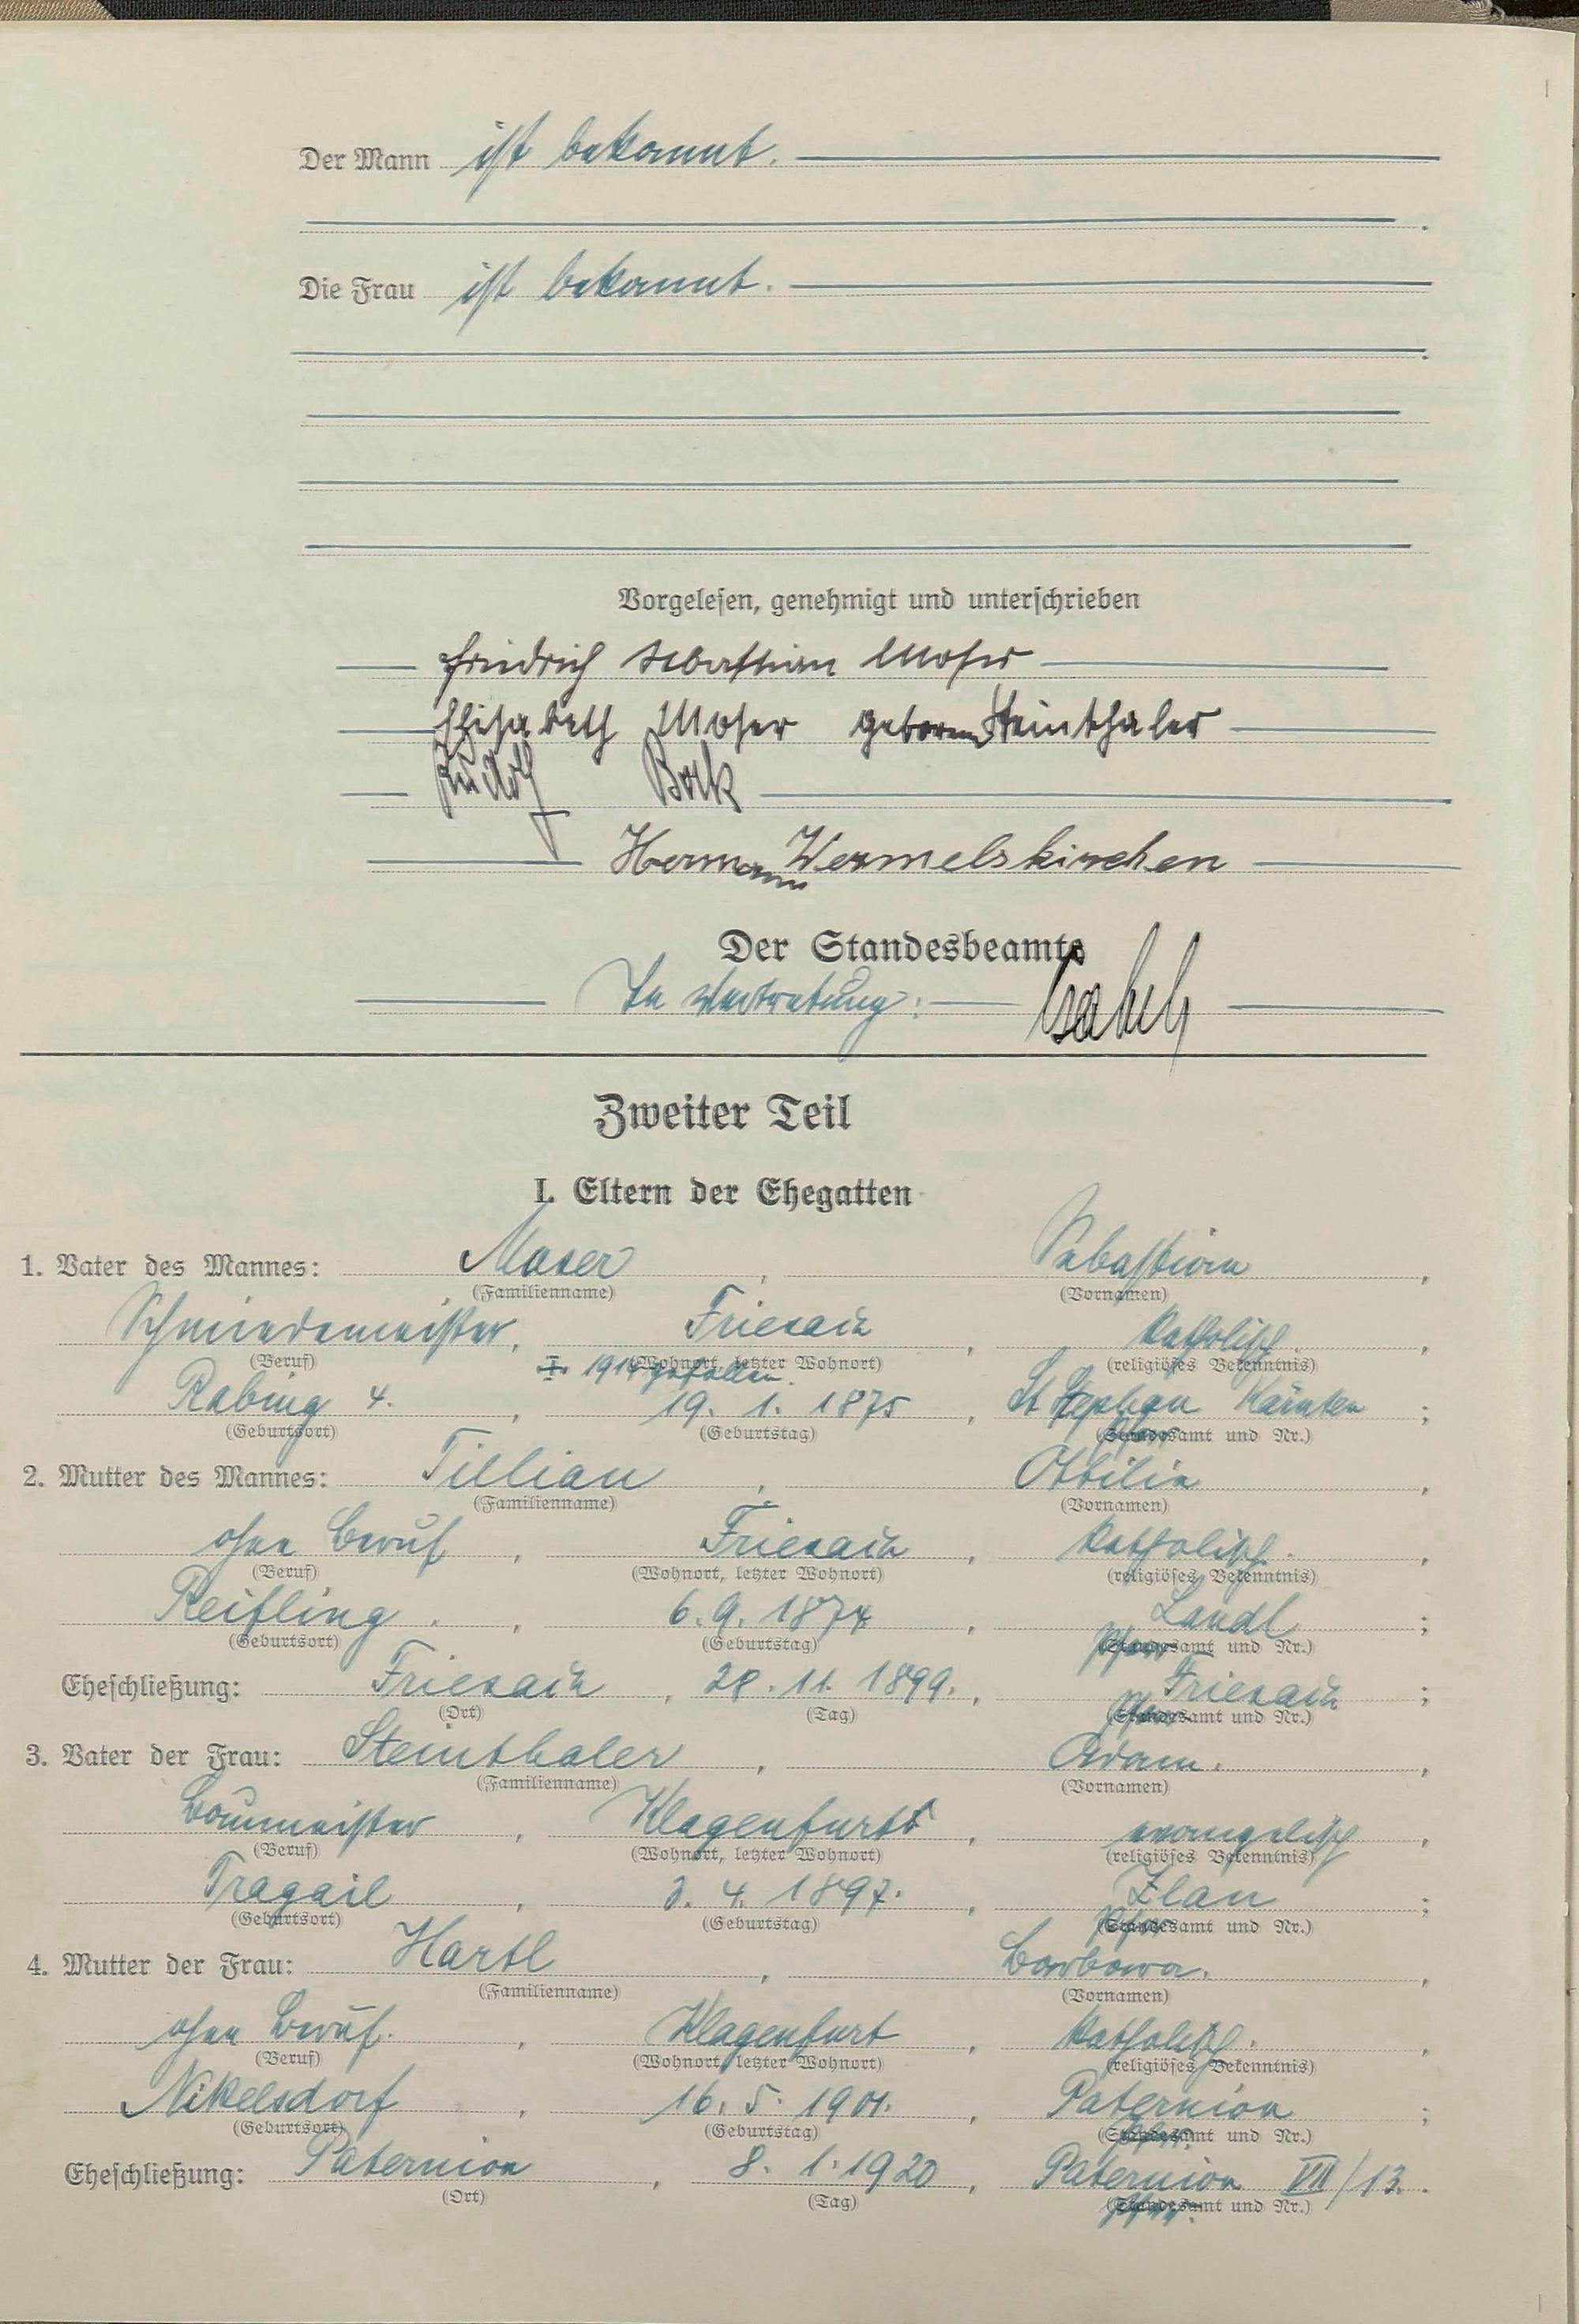 Der Mann ist bekannt.
Die Frau ist bekannt.
Vorgelesen, genehmigt und unterschrieben
Friedrich Sebastian Moser
Elisabeth Moser geborene Steinthaler
Rudolf Bock
Hermann Wermelskirchen
Der Standesbeamte
In Vertretung:
Zweiter Teil
I. Eltern der Ehegatten
1. Vater des Mannes: Moser, Sebastian,
(Familienname) (Vornamen)
Schmiedemeister, Friesach, katholisch,
(Beruf) (Wohnort, letzter Wohnort) (religiöses Bekenntnis)
1914 gefallen.
Rabing 4., 19. 1. 1875, St Stephan Kärnten;
(Geburtsort) (Geburtstag) (Pfarramt und Nr.)
2. Mutter des Mannes: Tillian, Ottilia,
(Familienname) (Vornamen)
ohne Beruf, Friesach, katholisch.,
(Beruf) (Wohnort, letzter Wohnort) (religiöses Bekenntnis)
Reifling., 6. 9. 1874, Landl;
(Geburtsort) (Geburtstag) (Pfarramt und Nr.)
Eheschließung: Friesach, 28. 11. 1899., Friesach;
(Ort) (Tag) (Pfarramt und Nr.)
3. Vater der Frau: Steinthaler, Adam.,
(Familienname) (Vornamen)
Baumeister, Klagenfurt, evangelisch,
(Beruf) (Wohnort, letzter Wohnort) (religiöses Bekenntnis)
Tragail, 3. 4. 1897., Zlan;
(Geburtsort) (Geburtstag) (Pfarramt und Nr.)
4. Mutter der Frau: Hartl, Barbara.,
(Familienname) (Vornamen)
ohne Beruf., Klagenfurt, katholisch.,
(Beruf) (Wohnort, letzter Wohnort) (religiöses Bekenntnis)
Nikelsdorf, 16. 5. 1901., Paternion;
(Geburtsort) (Geburtstag) (Pfarramt und Nr.)
Eheschließung: Paternion, 8. 1. 1920, Paternion VII/13.
(Ort) (Tag) (Pfarramt und Nr.)